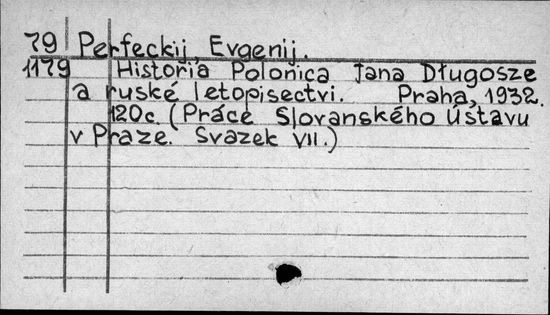 79 Perfeckij Evgenij.
1179 Historia Polonica Jana Długosze
a ruské letopisectvi. Praha, 1932.
120c. (Práce Slovanského ústavu
v Praze. Svazek VII.)